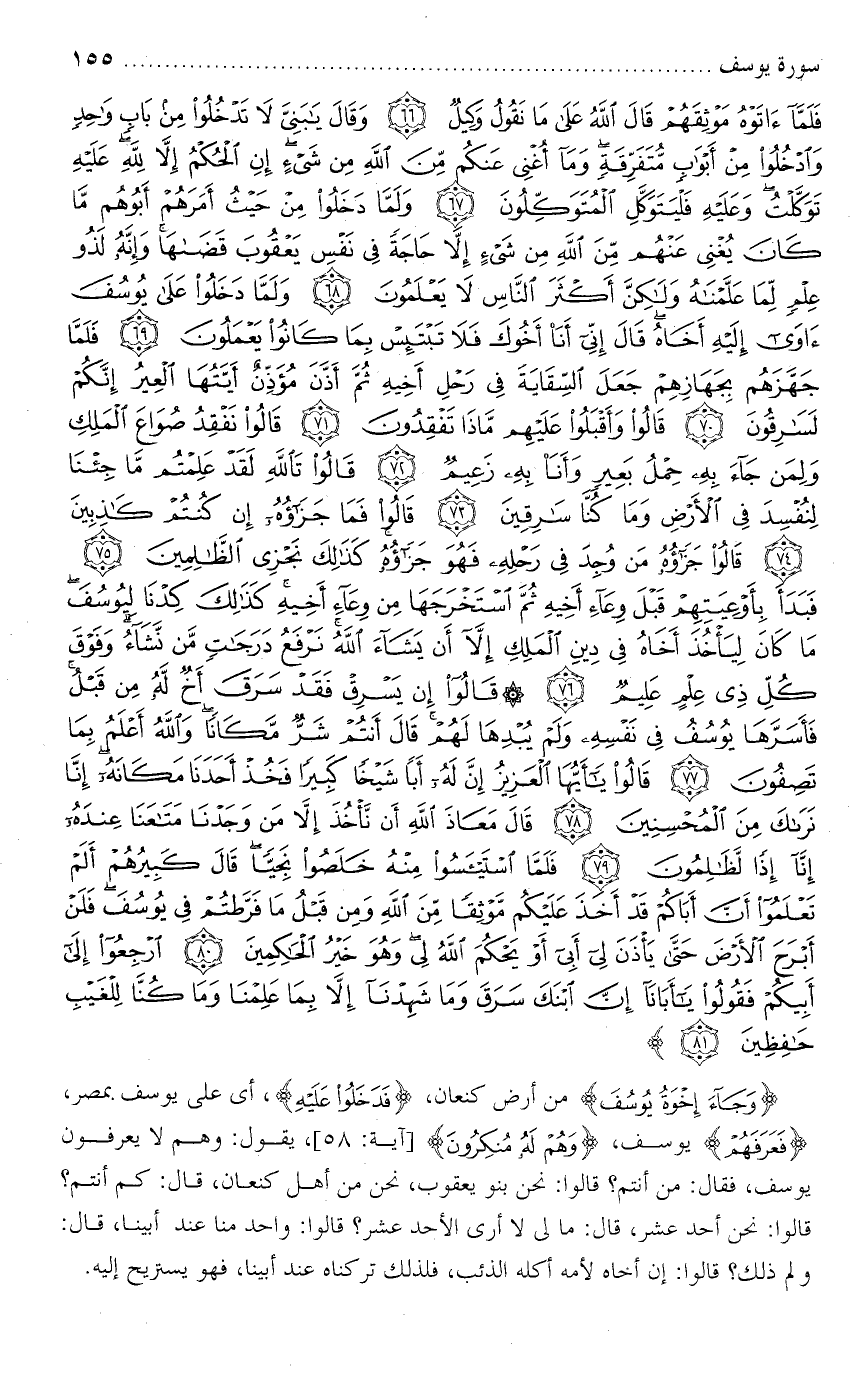 سورة يوسف ........................................................................ ١٥٥
فَلَمَّآ ءَاتَوۡهُ مَوۡثِقَهُمۡ قَالَ ٱللَّهُ عَلَىٰ مَا نَقُولُ وَكِيلٞ ﴿٦٦﴾ وَقَالَ يَٰبَنِيَّ لَا تَدۡخُلُواْ مِنۢ بَابٖ وَٰحِدٖ
وَٱدۡخُلُواْ مِنۡ أَبۡوَٰبٖ مُّتَفَرِّقَةٖۖ وَمَآ أُغۡنِي عَنكُم مِّنَ ٱللَّهِ مِن شَيۡءٍۖ إِنِ ٱلۡحُكۡمُ إِلَّا لِلَّهِۖ عَلَيۡهِ
تَوَكَّلۡتُۖ وَعَلَيۡهِ فَلۡيَتَوَكَّلِ ٱلۡمُتَوَكِّلُونَ ﴿٦٧﴾ وَلَمَّا دَخَلُواْ مِنۡ حَيۡثُ أَمَرَهُمۡ أَبُوهُم مَّا
كَانَ يُغۡنِي عَنۡهُم مِّنَ ٱللَّهِ مِن شَيۡءٍ إِلَّا حَاجَةٗ فِي نَفۡسِ يَعۡقُوبَ قَضَىٰهَاۚ وَإِنَّهُۥ لَذُو
عِلۡمٖ لِّمَا عَلَّمۡنَٰهُ وَلَٰكِنَّ أَكۡثَرَ ٱلنَّاسِ لَا يَعۡلَمُونَ ﴿٦٨﴾ وَلَمَّا دَخَلُواْ عَلَىٰ يُوسُفَ
ءَاوَىٰٓ إِلَيۡهِ أَخَاهُۖ قَالَ إِنِّيٓ أَنَا۠ أَخُوكَ فَلَا تَبۡتَئِسۡ بِمَا كَانُواْ يَعۡمَلُونَ ﴿٦٩﴾ فَلَمَّا
جَهَّزَهُم بِجَهَازِهِمۡ جَعَلَ ٱلسِّقَايَةَ فِي رَحۡلِ أَخِيهِ ثُمَّ أَذَّنَ مُؤَذِّنٌ أَيَّتُهَا ٱلۡعِيرُ إِنَّكُمۡ
لَسَٰرِقُونَ ﴿٧٠﴾ قَالُواْ وَأَقۡبَلُواْ عَلَيۡهِم مَّاذَا تَفۡقِدُونَ ﴿٧١﴾ قَالُواْ نَفۡقِدُ صُوَاعَ ٱلۡمَلِكِ
وَلِمَن جَآءَ بِهِۦ حِمۡلُ بَعِيرٖ وَأَنَا۠ بِهِۦ زَعِيمٞ ﴿٧٢﴾ قَالُواْ تَٱللَّهِ لَقَدۡ عَلِمۡتُم مَّا جِئۡنَا
لِنُفۡسِدَ فِي ٱلۡأَرۡضِ وَمَا كُنَّا سَٰرِقِينَ ﴿٧٣﴾ قَالُواْ فَمَا جَزَٰٓؤُهُۥٓ إِن كُنتُمۡ كَٰذِبِينَ
﴿٧٤﴾ قَالُواْ جَزَٰٓؤُهُۥ مَن وُجِدَ فِي رَحۡلِهِۦ فَهُوَ جَزَٰٓؤُهُۥۚ كَذَٰلِكَ نَجۡزِي ٱلظَّٰلِمِينَ ﴿٧٥﴾
فَبَدَأَ بِأَوۡعِيَتِهِمۡ قَبۡلَ وِعَآءِ أَخِيهِ ثُمَّ ٱسۡتَخۡرَجَهَا مِن وِعَآءِ أَخِيهِۚ كَذَٰلِكَ كِدۡنَا لِيُوسُفَۖ
مَا كَانَ لِيَأۡخُذَ أَخَاهُ فِي دِينِ ٱلۡمَلِكِ إِلَّآ أَن يَشَآءَ ٱللَّهُۚ نَرۡفَعُ دَرَجَٰتٖ مَّن نَّشَآءُۗ وَفَوۡقَ
كُلِّ ذِي عِلۡمٍ عَلِيمٞ ﴿٧٦﴾ ۞ قَالُوٓاْ إِن يَسۡرِقۡ فَقَدۡ سَرَقَ أَخٞ لَّهُۥ مِن قَبۡلُۚ
فَأَسَرَّهَا يُوسُفُ فِي نَفۡسِهِۦ وَلَمۡ يُبۡدِهَا لَهُمۡۚ قَالَ أَنتُمۡ شَرّٞ مَّكَانٗاۖ وَٱللَّهُ أَعۡلَمُ بِمَا
تَصِفُونَ ﴿٧٧﴾ قَالُواْ يَٰٓأَيُّهَا ٱلۡعَزِيزُ إِنَّ لَهُۥٓ أَبٗا شَيۡخٗا كَبِيرٗا فَخُذۡ أَحَدَنَا مَكَانَهُۥٓۖ إِنَّا
نَرَىٰكَ مِنَ ٱلۡمُحۡسِنِينَ ﴿٧٨﴾ قَالَ مَعَاذَ ٱللَّهِ أَن نَّأۡخُذَ إِلَّا مَن وَجَدۡنَا مَتَٰعَنَا عِندَهُۥٓ
إِنَّآ إِذٗا لَّظَٰلِمُونَ ﴿٧٩﴾ فَلَمَّا ٱسۡتَيۡـَٔسُواْ مِنۡهُ خَلَصُواْ نَجِيّٗاۖ قَالَ كَبِيرُهُمۡ أَلَمۡ
تَعۡلَمُوٓاْ أَنَّ أَبَاكُمۡ قَدۡ أَخَذَ عَلَيۡكُم مَّوۡثِقٗا مِّنَ ٱللَّهِ وَمِن قَبۡلُ مَا فَرَّطتُمۡ فِي يُوسُفَۖ فَلَنۡ
أَبۡرَحَ ٱلۡأَرۡضَ حَتَّىٰ يَأۡذَنَ لِيٓ أَبِيٓ أَوۡ يَحۡكُمَ ٱللَّهُ لِيۖ وَهُوَ خَيۡرُ ٱلۡحَٰكِمِينَ ﴿٨٠﴾ ٱرۡجِعُوٓاْ إِلَىٰٓ
أَبِيكُمۡ فَقُولُواْ يَٰٓأَبَانَآ إِنَّ ٱبۡنَكَ سَرَقَ وَمَا شَهِدۡنَآ إِلَّا بِمَا عَلِمۡنَا وَمَا كُنَّا لِلۡغَيۡبِ
حَٰفِظِينَ ﴿٨١﴾ ﴾
﴿وَجَآءَ إِخۡوَةُ يُوسُفَ﴾ من أرض كنعان، ﴿فَدَخَلُواْ عَلَيۡهِ﴾، أى على يوسف بمصر،
﴿فَعَرَفَهُمۡ﴾ يوسف، ﴿وَهُمۡ لَهُۥ مُنكِرُونَ﴾ [آية: ٥٨]، يقول: وهم لا يعرفون
يوسف، فقال: من أنتم؟ قالوا: نحن بنو يعقوب، نحن من أهل كنعان، قال: كم أنتم؟
قالوا: نحن أحد عشر، قال: ما لى لا أرى الأحد عشر؟ قالوا: واحد منا عند أبينا، قال:
و لم ذلك؟ قالوا: إن أخاه لأمه أكله الذئب، فلذلك تركناه عند أبينا، فهو يستريح إليه.